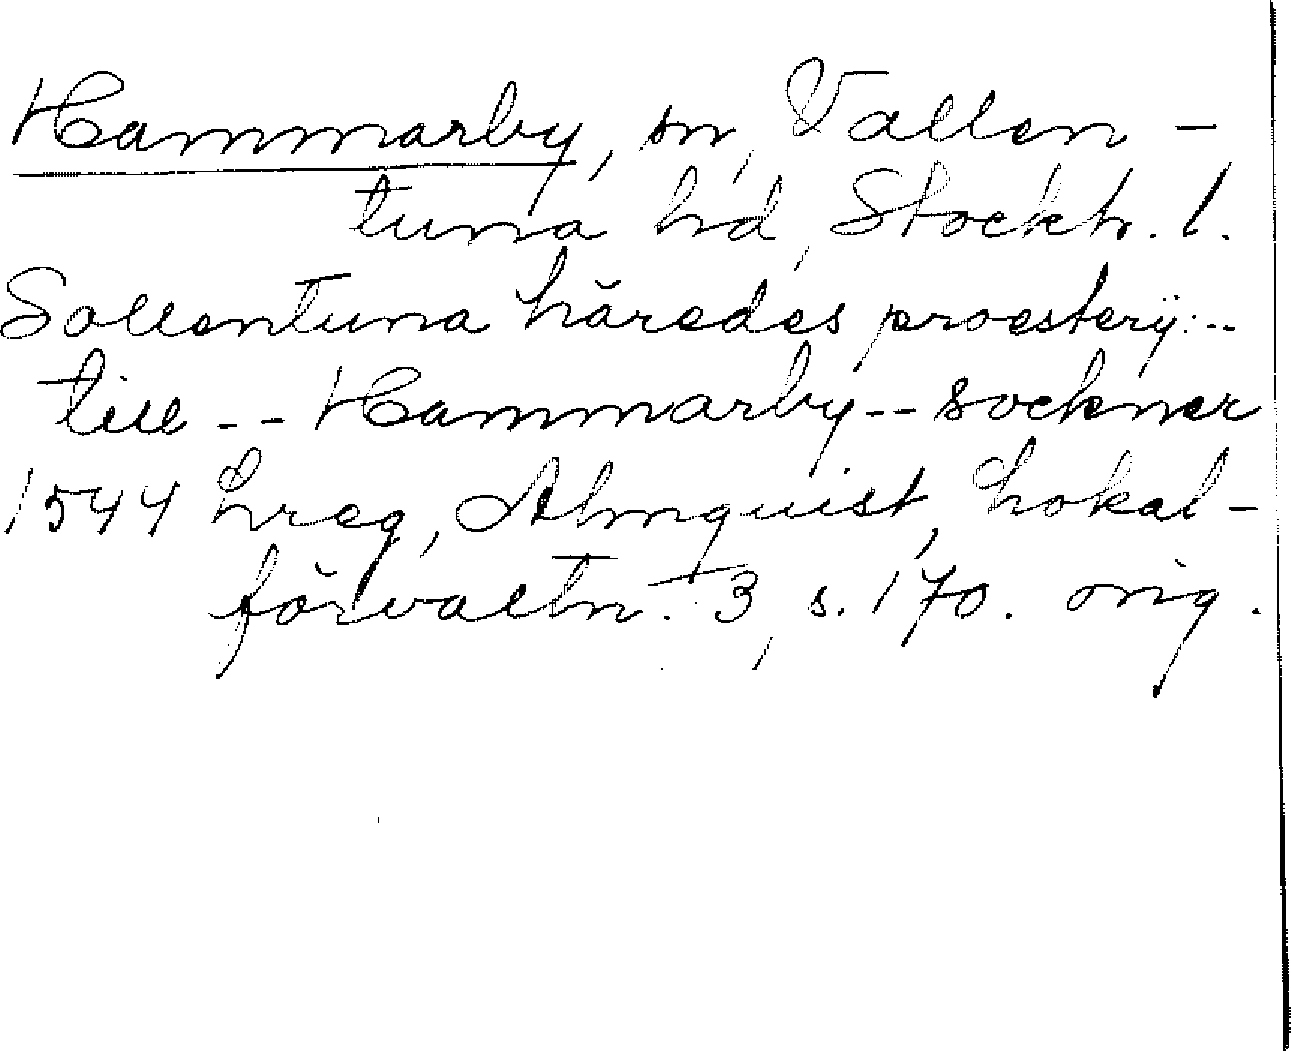 Hammarby, sn, Vallen-
tuna hd, Stockh. l.
Sollentuna häredes proesterij:--
till -- Hammarby -- sockner
1544 Lreg, Almquist, Lokal-
förvaltn. 3, s. 170. orig.